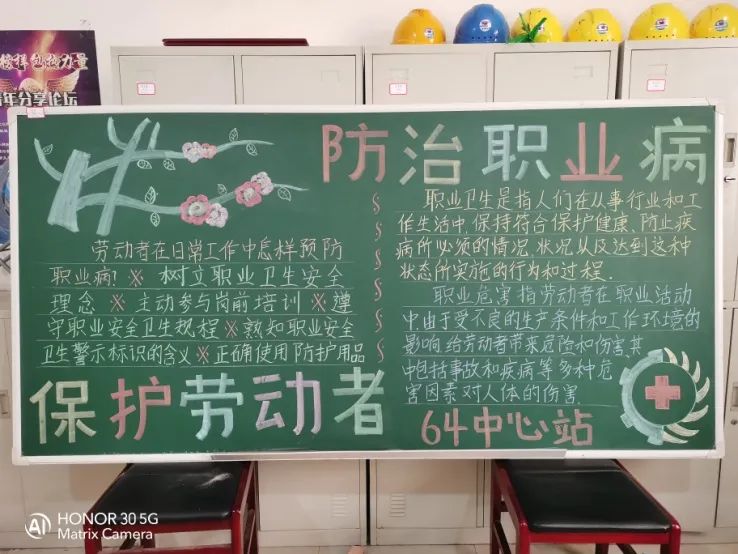 防治职业病
劳动者在日常工作中怎样预防
职业病? ※ 树立职业卫生安全
理念 ※ 主动参与岗前培训 ※ 遵
守职业安全卫生规程 ※ 熟知职业安全
卫生警示标识的含义 ※ 正确使用防护用品
保护劳动者
职业卫生是指人们在从事行业和工
作生活中,保持符合保护健康、防止疾
病所必须的情况、状况以及达到这种
状态所实施的行为和过程.
职业危害指劳动者在职业活动
中由于受不良的生产条件和工作环境的
影响,给劳动者带来危险和伤害,其
中包括事故和疾病等多种危
害因素对人体的伤害.
64中心站
HONOR 30 5G
Matrix Camera